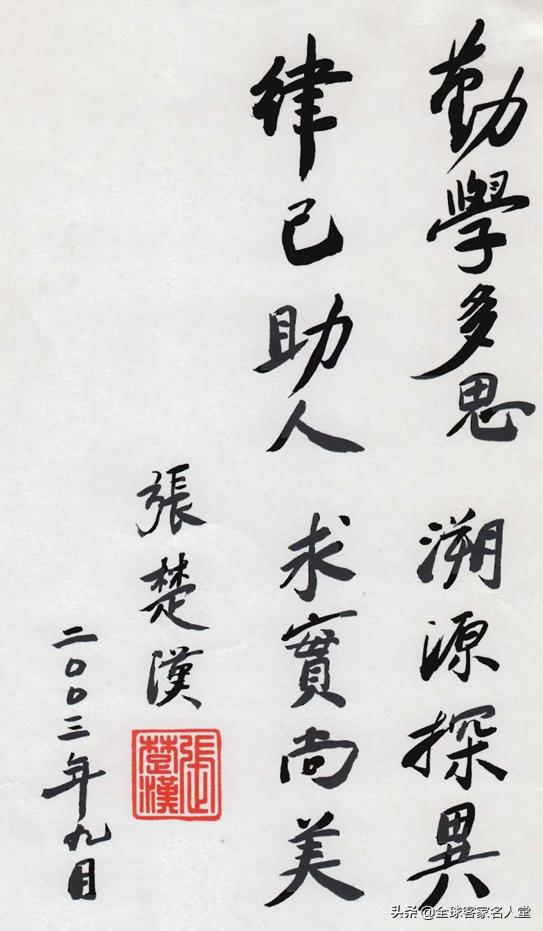 勤學多思 溯源探異
律己助人 求實尚美
張楚漢
二〇〇三年九月
張楚漢
头条 @全球客家名人堂